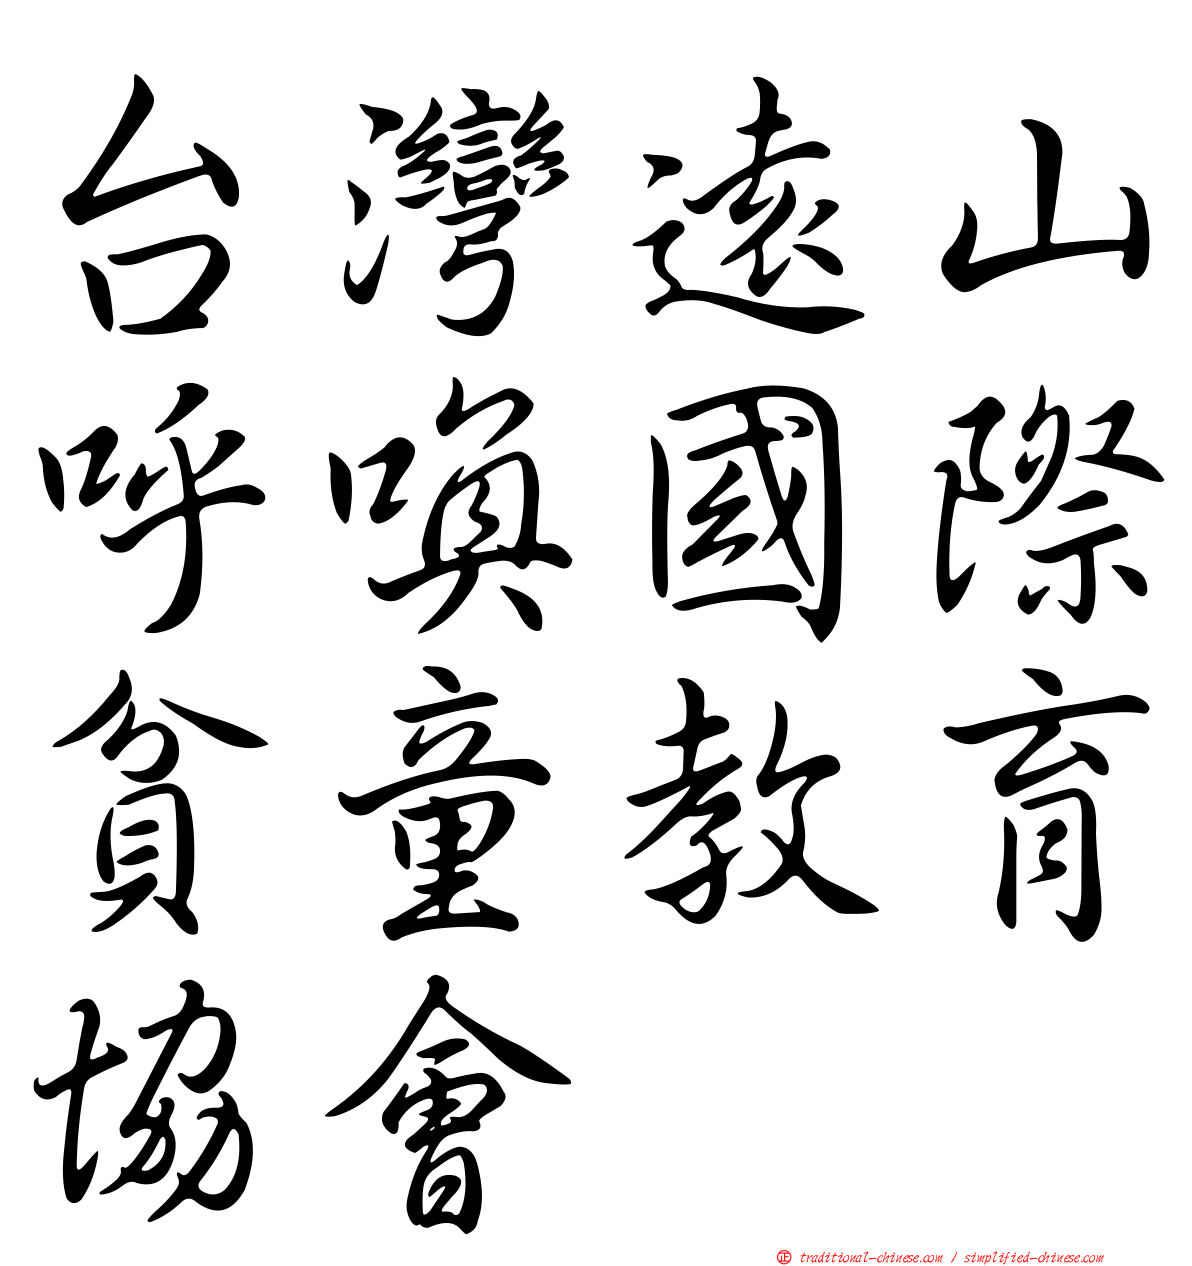 台灣遠山
呼喚國際
貧童教育
協會
㊣ traditional-chinese.com / simplified-chinese.com